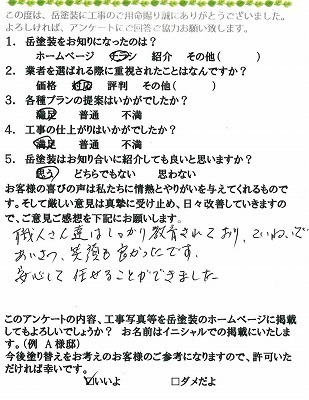 この度は、岳塗装に工事のご用命賜り誠にありがとうございました。
よろしければ、アンケートにご回答ご協力お願い致します。
1. 岳塗装をお知りになったのは?
ホームページ チラシ 紹介 その他( )
2. 業者を選ばれる際に重視されたことはなんですか?
価格 対応 評判 その他( )
3. 各種プランの提案はいかがでしたか?
満足 普通 不満
4. 工事の仕上がりはいかがでしたか?
満足 普通 不満
5. 岳塗装はお知り合いに紹介しても良いと思いますか?
思う どちらでもない 思わない
お客様の喜びの声は私たちに情熱とやりがいを与えてくれるもので
す。そして厳しい意見は真摯に受け止め、日々改善していきますの
で、ご意見ご感想を下記にお願いします。
職人さん達はしっかり教育されており、ていねいで
あいさつ、笑顔も良かったです。
安心して任せることができました
このアンケートの内容、工事写真等を岳塗装のホームページに掲載
してもよろしいでしょうか? お名前はイニシャルでの掲載にいたしま
す。(例 A様邸)
今後塗り替えをお考えのお客様のご参考になりますので、許可いた
だければ幸いです。
☑いいよ □ダメだよ